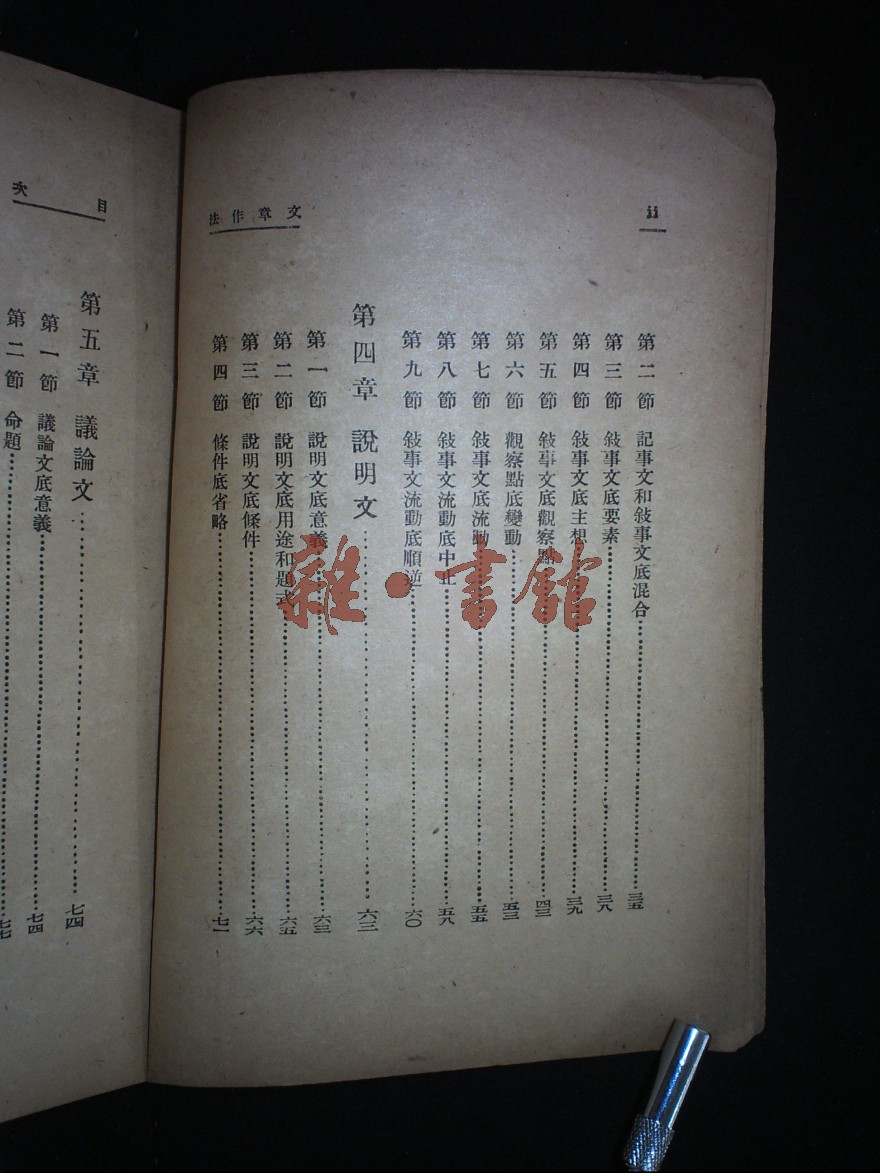 文章作法
ii
第二節 記事文和敍事文底混合……三五
第三節 敍事文底要素……三八
第四節 敍事文底主想……三九
第五節 敍事文底觀察點……四三
第六節 觀察點底變動……五三
第七節 敍事文底流動……五五
第八節 敍事文流動底中止……五八
第九節 敍事文流動底順逆……六〇
第四章 說明文……六三
第一節 說明文底意義……六三
第二節 說明文底用途和題式……六五
第三節 說明文底條件……六六
第四節 條件底省略……七一
目次
第五章 議論文……七四
第一節 議論文底意義……七四
第二節 命題……七七
雜·書館